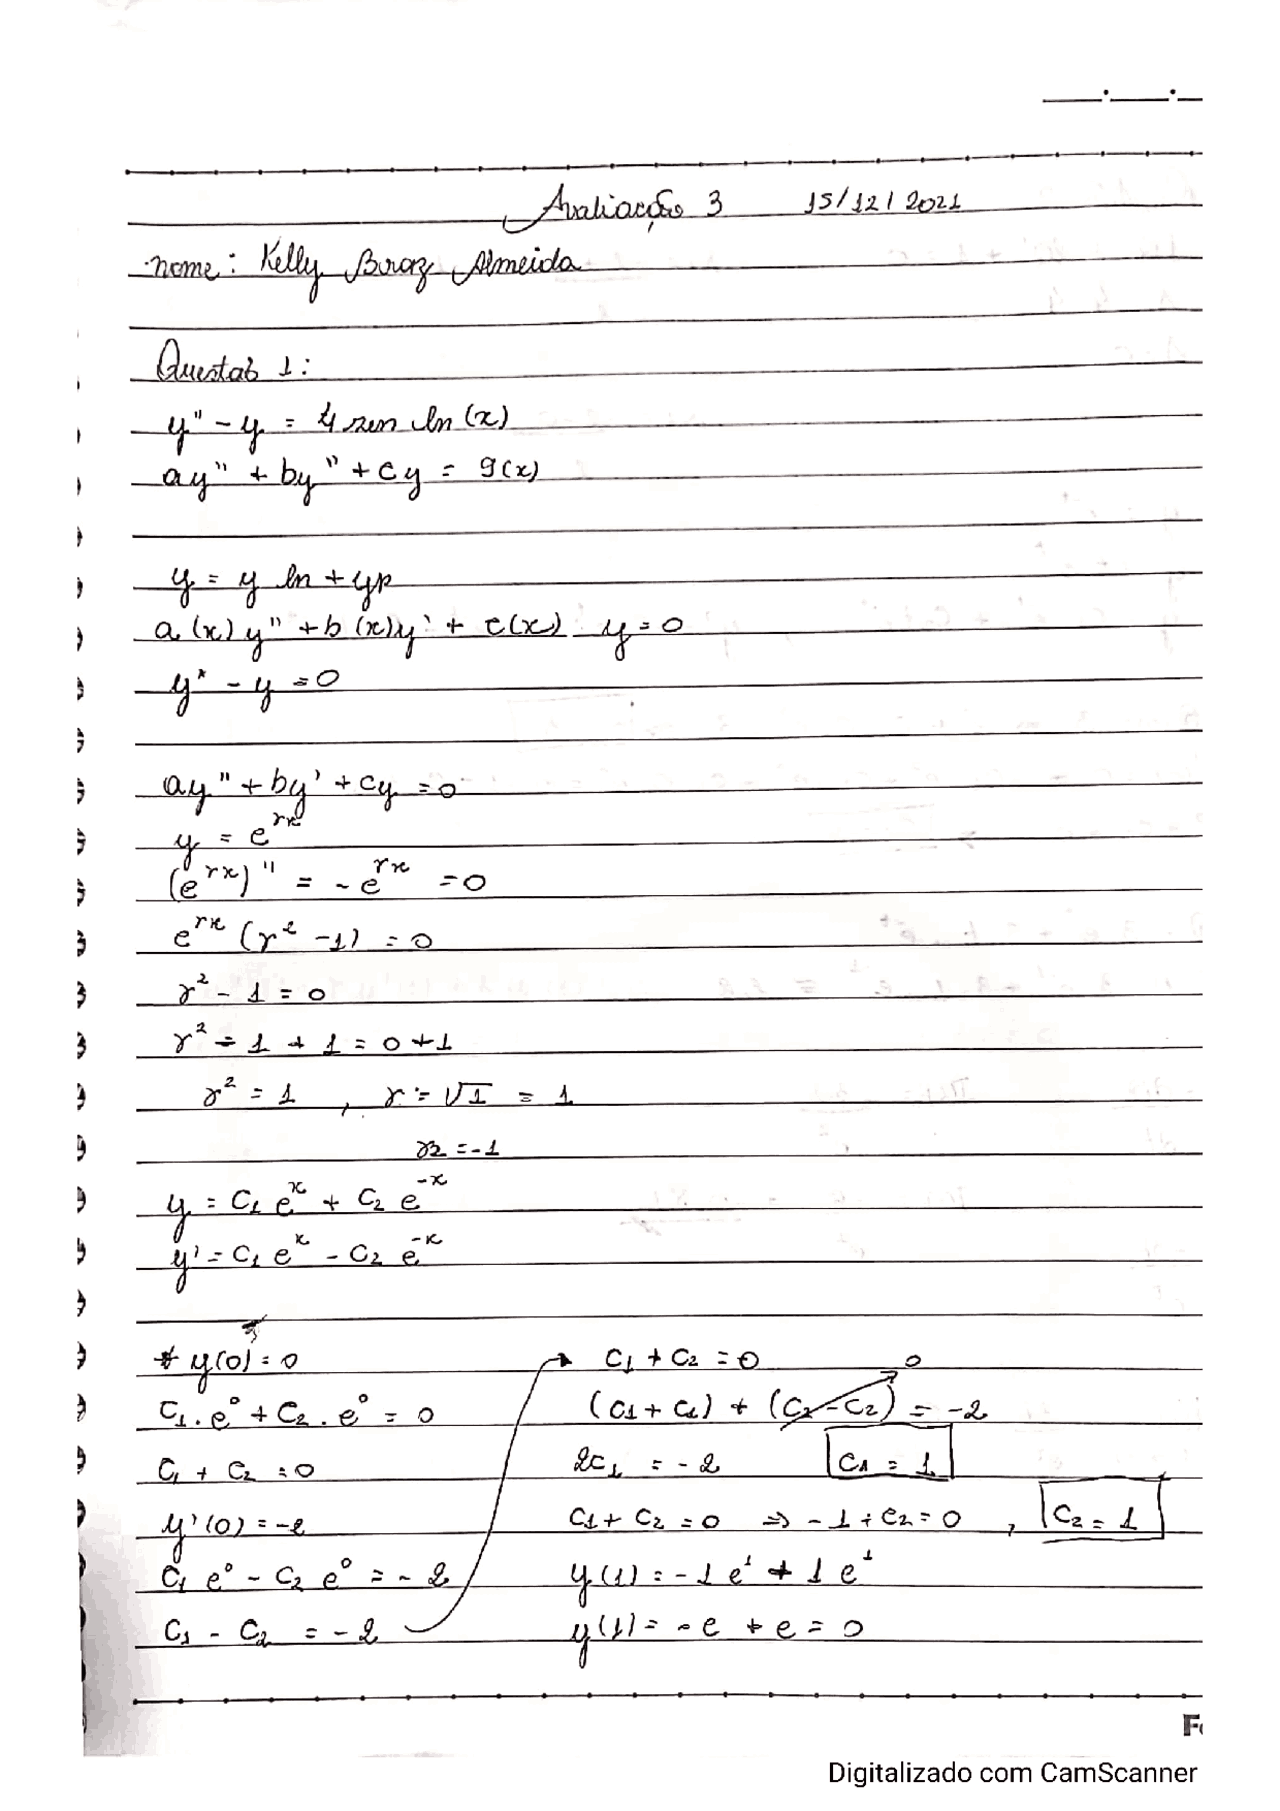 Avaliação 3 15/12/2021
nome: Kelly Braz Almeida
Questão 1:
y" - y = 4 sen ln (x)
ay" + by" + cy = g(x)
y = y ln + yp
a (x) y" + b (x)y' + c(x) y = 0
y" - y = 0
ay" + by' + cy = 0
y = e^rx
(e^rx)" = - e^rx = 0
e^rx (r² - 1) = 0
r² - 1 = 0
r² - 1 + 1 = 0 + 1
r² = 1 , r = √1 = 1
r2 = -1
y = C1 e^x + C2 e^-x
y' = C1 e^x - C2 e^-x
* y(0) = 0
C1 . e° + C2 . e° = 0
C1 + C2 = 0
y'(0) = -2
C1 e° - C2 e° = - 2
C1 - C2 = - 2
C1 + C2 = 0
0
(C1 + C1) + (C2 - C2) = -2
2C1 = - 2 C1 = 1
C1 + C2 = 0 ⇒ - 1 + C2 = 0 , C2 = 1
y(1) = - 1 e¹ + 1 e¹
y(1) = - e + e = 0
Digitalizado com CamScanner